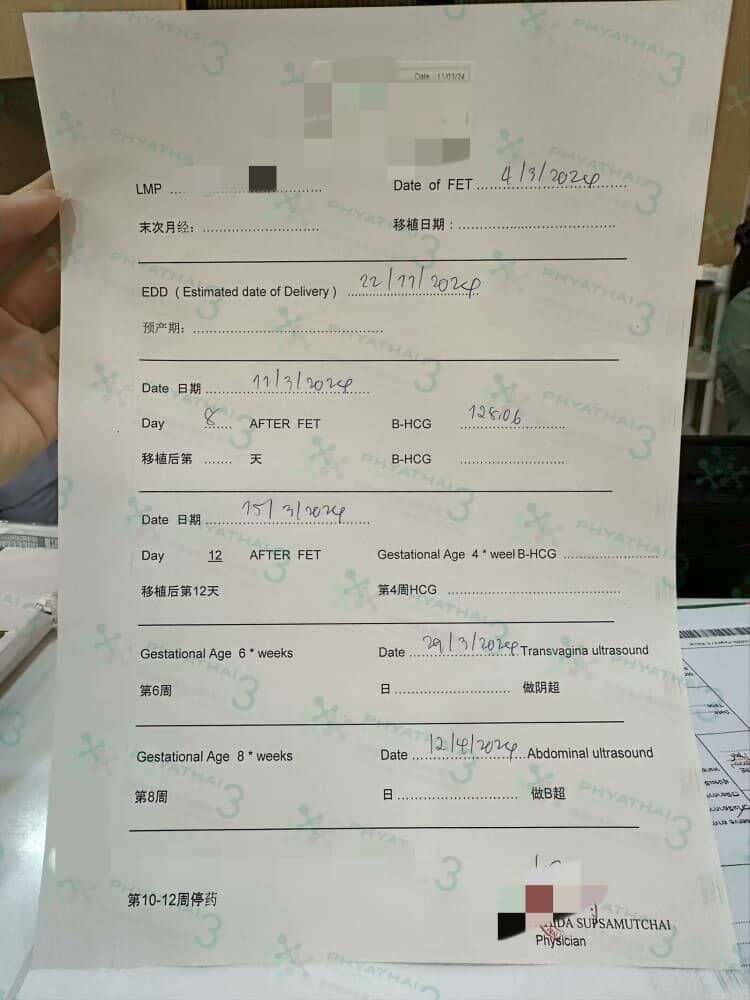 Date 11/03/24
LMP ........................ Date of FET 4/3/2024
末次月经：........................ 移植日期：........................
EDD ( Estimated date of Delivery ) 22/11/2024
预产期：........................
Date 日期 11/3/2024
Day 8 AFTER FET B-HCG 128.06
移植后第 ...... 天 B-HCG ........................
Date 日期 15/3/2024
Day 12 AFTER FET Gestational Age 4 * weel B-HCG ........................
移植后第12天 第4周HCG ........................
Gestational Age 6 * weeks Date 29/3/2024 Transvagina ultrasound
第6周 日 ........................ 做阴超
Gestational Age 8 * weeks Date 12/4/2024 Abdominal ultrasound
第8周 日 ........................ 做B超
第10-12周停药
SUPSAMUTCHAI
Physician
PHYATHAI 3